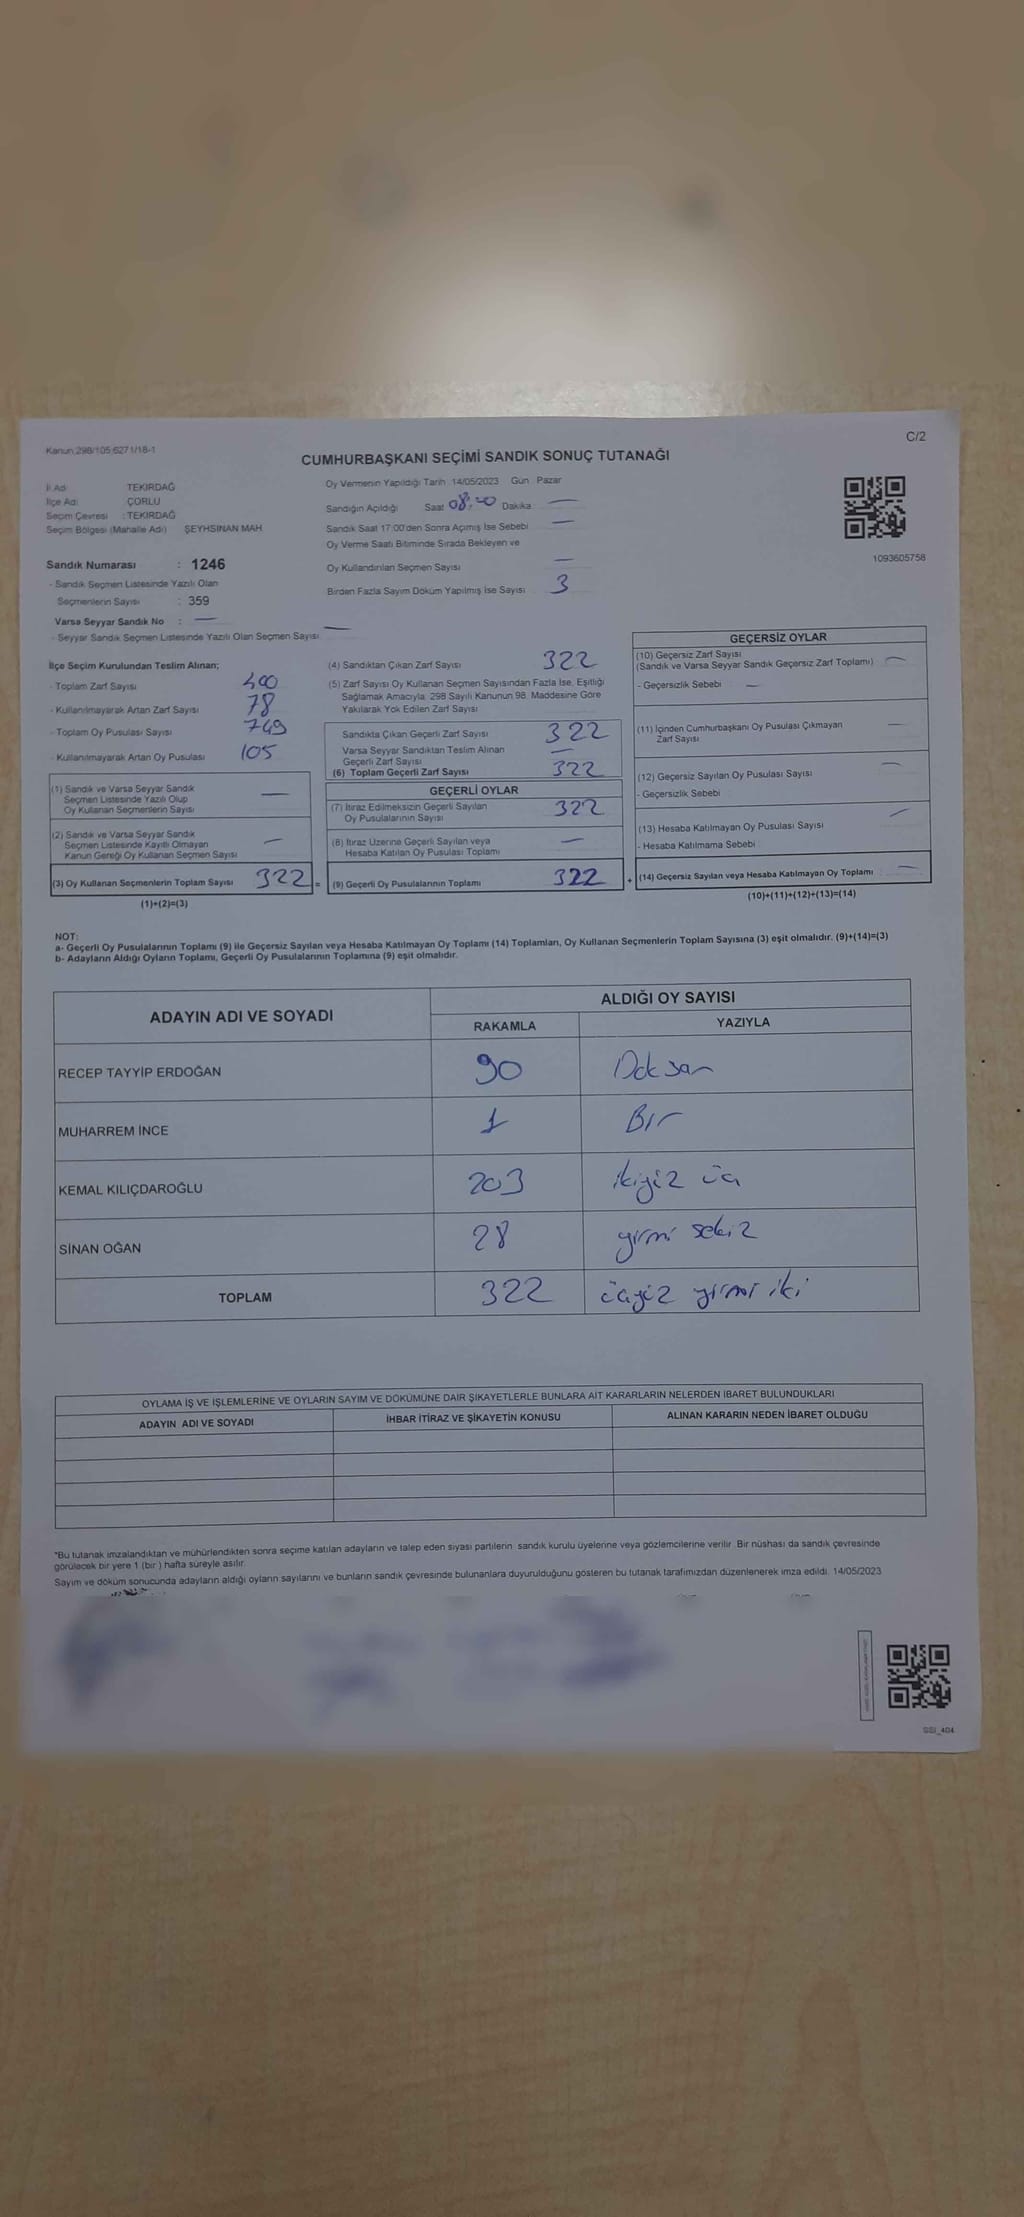 Kanun 298/105 6271/18-1
C/2
CUMHURBAŞKANI SEÇİMİ SANDIK SONUÇ TUTANAĞI
İl Adı TEKİRDAĞ
İlçe Adı ÇORLU
Seçim Çevresi : TEKİRDAĞ
Seçim Bölgesi (Mahalle Adı) ŞEYHSİNAN MAH
Sandık Numarası : 1246
- Sandık Seçmen Listesinde Yazılı Olan
Seçmenlerin Sayısı : 359
Varsa Seyyar Sandık No : —
- Seyyar Sandık Seçmen Listesinde Yazılı Olan Seçmen Sayısı —
Oy Vermenin Yapıldığı Tarih 14/05/2023 Gün Pazar
Sandığın Açıldığı Saat Dakika —
Sandık Saat 17:00'den Sonra Açımış İse Sebebi —
Oy Verme Saati Bitiminde Sırada Bekleyen ve
Oy Kullandırılan Seçmen Sayısı —
Birden Fazla Sayım Döküm Yapılmış İse Sayısı 3
1093605758
İlçe Seçim Kurulundan Teslim Alınan;
- Toplam Zarf Sayısı 400
- Kullanılmayarak Artan Zarf Sayısı 78
- Toplam Oy Pusulası Sayısı 749
- Kullanılmayarak Artan Oy Pusulası 105
(1) Sandık ve Varsa Seyyar Sandık
Seçmen Listesinde Yazılı Olup
Oy Kullanan Seçmenlerin Sayısı —
(2) Sandık ve Varsa Seyyar Sandık
Seçmen Listesinde Kayıtlı Olmayan
Kanun Gereği Oy Kullanan Seçmen Sayısı —
(3) Oy Kullanan Seçmenlerin Toplam Sayısı 322 =
(1)+(2)=(3)
(4) Sandıktan Çıkan Zarf Sayısı 322
(5) Zarf Sayısı Oy Kullanan Seçmen Sayısından Fazla İse, Eşitliği
Sağlamak Amacıyla, 298 Sayılı Kanunun 98. Maddesine Göre
Yakılarak Yok Edilen Zarf Sayısı
Sandıkta Çıkan Geçerli Zarf Sayısı 322
Varsa Seyyar Sandıktan Teslim Alınan
Geçerli Zarf Sayısı —
(6) Toplam Geçerli Zarf Sayısı 322
GEÇERLİ OYLAR
(7) İtiraz Edilmeksizin Geçerli Sayılan
Oy Pusulalarının Sayısı 322
(8) İtiraz Üzerine Geçerli Sayılan veya
Hesaba Katılan Oy Pusulası Toplamı —
(9) Geçerli Oy Pusulalarının Toplamı 322 +
GEÇERSİZ OYLAR
(10) Geçersiz Zarf Sayısı
(Sandık ve Varsa Seyyar Sandık Geçersiz Zarf Toplamı) —
- Geçersizlik Sebebi —
(11) İçinden Cumhurbaşkanı Oy Pusulası Çıkmayan
Zarf Sayısı —
(12) Geçersiz Sayılan Oy Pusulası Sayısı —
- Geçersizlik Sebebi
(13) Hesaba Katılmayan Oy Pusulası Sayısı —
- Hesaba Katılmama Sebebi
(14) Geçersiz Sayılan veya Hesaba Katılmayan Oy Toplamı —
(10)+(11)+(12)+(13)=(14)
NOT:
a- Geçerli Oy Pusulalarının Toplamı (9) ile Geçersiz Sayılan veya Hesaba Katılmayan Oy Toplamı (14) Toplamları, Oy Kullanan Seçmenlerin Toplam Sayısına (3) eşit olmalıdır. (9)+(14)=(3)
b- Adayların Aldığı Oyların Toplamı, Geçerli Oy Pusulalarının Toplamına (9) eşit olmalıdır.
ADAYIN ADI VE SOYADI
ALDIĞI OY SAYISI
RAKAMLA YAZIYLA
RECEP TAYYİP ERDOĞAN 90 Doksan
MUHARREM İNCE 1 Bir
KEMAL KILIÇDAROĞLU 203 ikiyüz üç
SİNAN OĞAN 28 yirmi sekiz
TOPLAM 322 üçyüz yirmi iki
OYLAMA İŞ VE İŞLEMLERİNE VE OYLARIN SAYIM VE DÖKÜMÜNE DAİR ŞİKAYETLERLE BUNLARA AİT KARARLARIN NELERDEN İBARET BULUNDUKLARI
ADAYIN ADI VE SOYADI İHBAR İTİRAZ VE ŞİKAYETİN KONUSU ALINAN KARARIN NEDEN İBARET OLDUĞU
*Bu tutanak imzalandıktan ve mühürlendikten sonra seçime katılan adayların ve talep eden siyasi partilerin sandık kurulu üyelerine veya gözlemcilerine verilir. Bir nüshası da sandık çevresinde
görülecek bir yere 1 (bir ) hafta süreyle asılır.
Sayım ve döküm sonucunda adayların aldığı oyların sayılarını ve bunların sandık çevresinde bulunanlara duyurulduğunu gösteren bu tutanak tarafımızdan düzenlenerek imza edildi. 14/05/2023
SSI_404